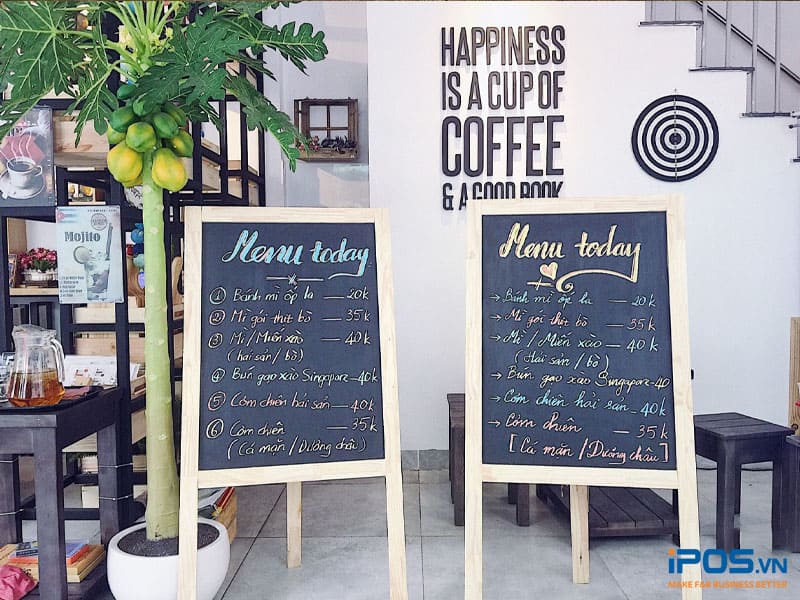 HAPPINESS
IS A CUP OF
COFFEE
& A GOOD BOOK
Mojito
Menu today
① Bánh mì ốp la — 20k
② Mì gói thịt bò — 35k
③ Mì / Miến xào — 40k
(hải sản / bò)
④ Bún gạo xào Singapore - 40k
⑤ Cơm chiên hải sản — 40k
⑥ Cơm chiên — 35k
(Cá mặn / Dương châu)
Menu today
→ Bánh mì ốp la — 20k
→ Mì gói thịt bò — 35k
→ Mì / Miến xào — 40k
(Hải sản / bò)
→ Bún gạo xào Singapore - 40
→ Cơm chiên hải sản - 40k
→ Cơm chiên — 35k
[Cá mặn / Dương châu]
iPOS.VN
MAKE F&B BUSINESS BETTER